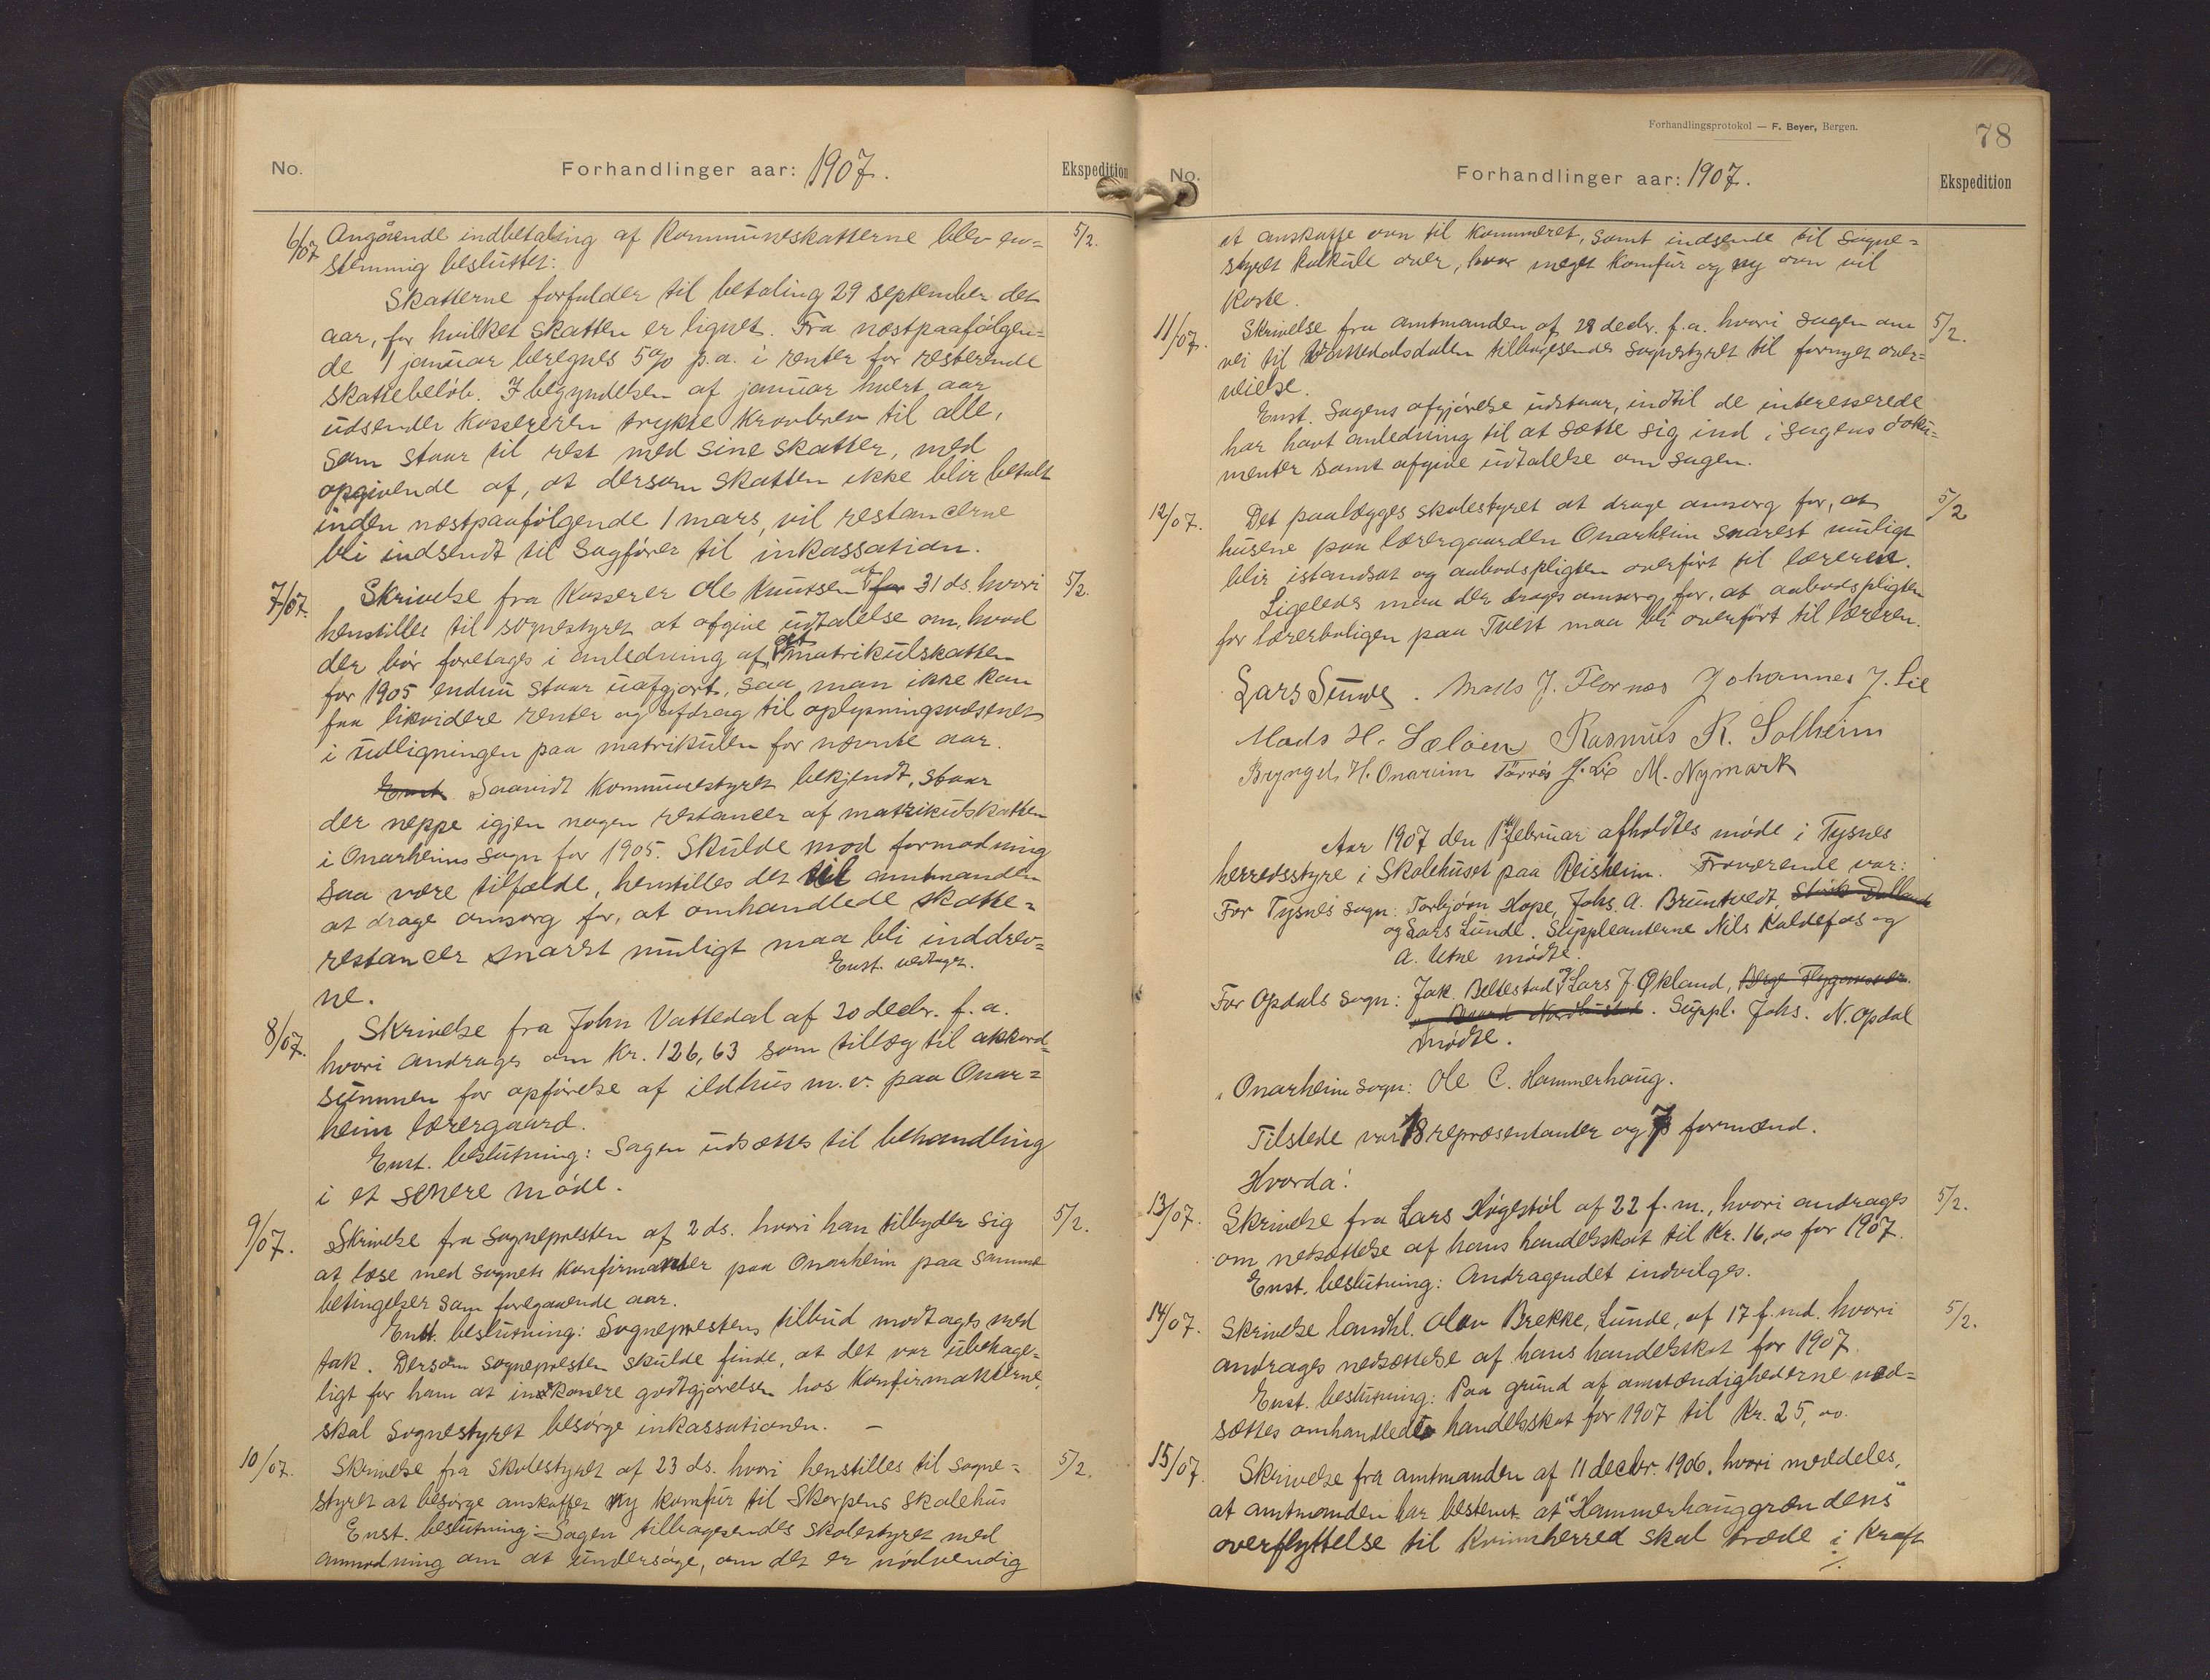 No.
Forhandlinger aar: 1907.
Ekspedition
6/07
Angående indbetaling af Kommuneskatterne blev en=
5/2.
stemmig besluttet:
Skatterne forfalder til betaling 29 september det
aar, for hvilket skatten er lignet. Fra næstpaafølgen=
de 1 januar beregnes 5% p.a. i renter for resterende
skattebeløb. I begyndelsen af januar hvert aar
udsender Kassereren trykte Kravbrev til alle,
som staar til rest med sine skatter, med
opgivende af, at dersom skatten ikke blir betalt
inden næstpaafølgende 1 mars, vil restancerne
bli indsendt til Sagfører til inkassation.
7/07.
Skrivelse fra Kasserer Ole Knutsen af for 31 ds. hvori
5/2.
henstilles til sognestyret at afgive udtalelse om, hvad
der bør foretages i anledning af, at matrikulskatten
for 1905 endnu staar uafgjort, saa man ikke kan
faa likvidere renter og afdrag til oplysningsvæsenet
i udligningen paa matrikulen for nævnte aar.
Enst. Saavidt Kommunestyret bekjendt, staar
der neppe igjen nogen restancer af matrikulskatten
i Onarheims sogn for 1905. Skulde mod formodning
saa være tilfælde, henstilles det til amtmanden
at drage omsorg for, at omhandlede skatte=
restancer snarest muligt maa bli inddrev=
ne.
Enst. vedtaget.
8/07.
Skrivelse fra John Vattedal af 20 decbr. f.a.
hvori andrages om Kr. 126,63 som tillæg til akkord=
summen for opførelse af ildhus m.v. paa Onar=
heim lærergaard.
Enst. beslutning: Sagen udsættes til behandling
i et senere møde.
9/07.
Skrivelse fra sognepresten af 2 ds. hvori han tilbyder sig
5/2.
at læse med sognets Konfirmanter paa Onarheim paa samme
betingelser som foregaaende aar.
Enst. beslutning: Sogneprestens tilbud modtages med
tak. Dersom sognepresten skulde finde, at det var ubehage=
ligt for ham at indkassere godtgjørelsen hos Konfirmanterne,
skal Sognestyret besørge inkassationen. –
10/07.
Skrivelse fra Skolestyret af 23 ds. hvori henstilles til sogne=
5/2.
styret at besørge anskaffet ny komfur til Skorpens skolehus
Enst. beslutning: Sagen tilbagesendes skolestyret med
anmodning om at undersøge, om det er nødvendig
Forhandlingsprotokol — F. Beyer, Bergen.
78
No.
Forhandlinger aar: 1907.
Ekspedition
at anskaffe ovn til kammeret, samt indsende til sogne=
styret kalkule over, hvor meget Komfur og ny ovn vil
koste.
11/07.
Skrivelse fra amtmanden af 28 decbr. f.a. hvori sagen om
5/2.
vei til Vattedalsdalen tilbagesendes sognestyret til fornyet over=
veielse.
Enst. Sagens afgjørelse udstaar, indtil de interesserede
har havt anledning til at sætte sig ind i sagens doku=
menter samt afgive udtalelse om sagen.
12/07.
Det paalægges skolestyret at drage omsorg for, at
5/2
husene paa lærergaarden Onarheim snarest muligt
blir istandsat og aabodspligten overført til læreren.
Ligeledes maa der drages omsorg for, at aabodspligten
for lærerboligen paa Tveit maa bli overført til læreren.
Lars Lunde. Mads J. Flornæs Johannes J. Lie
Mads H. Sæløen Rasmus R. Solheim
Bryngel H. Onareim Tørris J. Lie M. Nymark
Aar 1907 den 1ste februar afholdtes møde i Tysnes
herredsstyre i Skolehuset paa Reisheim. Fraværende var:
For Tysnes sogn: Torbjørn Hope, Johs. A. Bruntvedt,
og Lars Lunde. Suppleanterne Nils Kaldefos og
A. Utne mødte.
For Opdals sogn: Jak. Beltestad og Lars J. Økland,
Suppl. Johs. N. Opdal
mødte.
" Onarheim sogn: Ole C. Hammerhaug.
Tilstede var 18 repræsentanter og 7 formænd.
Hvorda:
13/07.
Skrivelse fra Lars Høgestøl af 22 f.m., hvori andrages
5/2.
om nedsættelse af hans handelsskat til Kr. 16,00 for 1907.
Enst. beslutning: Andragendet indvilges.
14/07.
Skrivelse landhl. Olav Brekke, Lunde, af 17 f.md. hvori
5/2.
andrages nedsættelse af hans handelsskat for 1907.
Enst. beslutning: Paa grund af omstændighederne ned=
sættes omhandlede handelsskat for 1907 til Kr. 25,00.
15/07.
Skrivelse fra amtmanden af 11 decbr. 1906. hvori meddeles,
at amtmanden har bestemt at "Hammerhauggrændens"
overflyttelse til Kvinnherred skal træde i kraft
./.